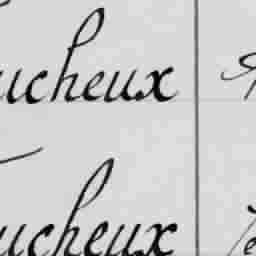 ucheux
ucheux